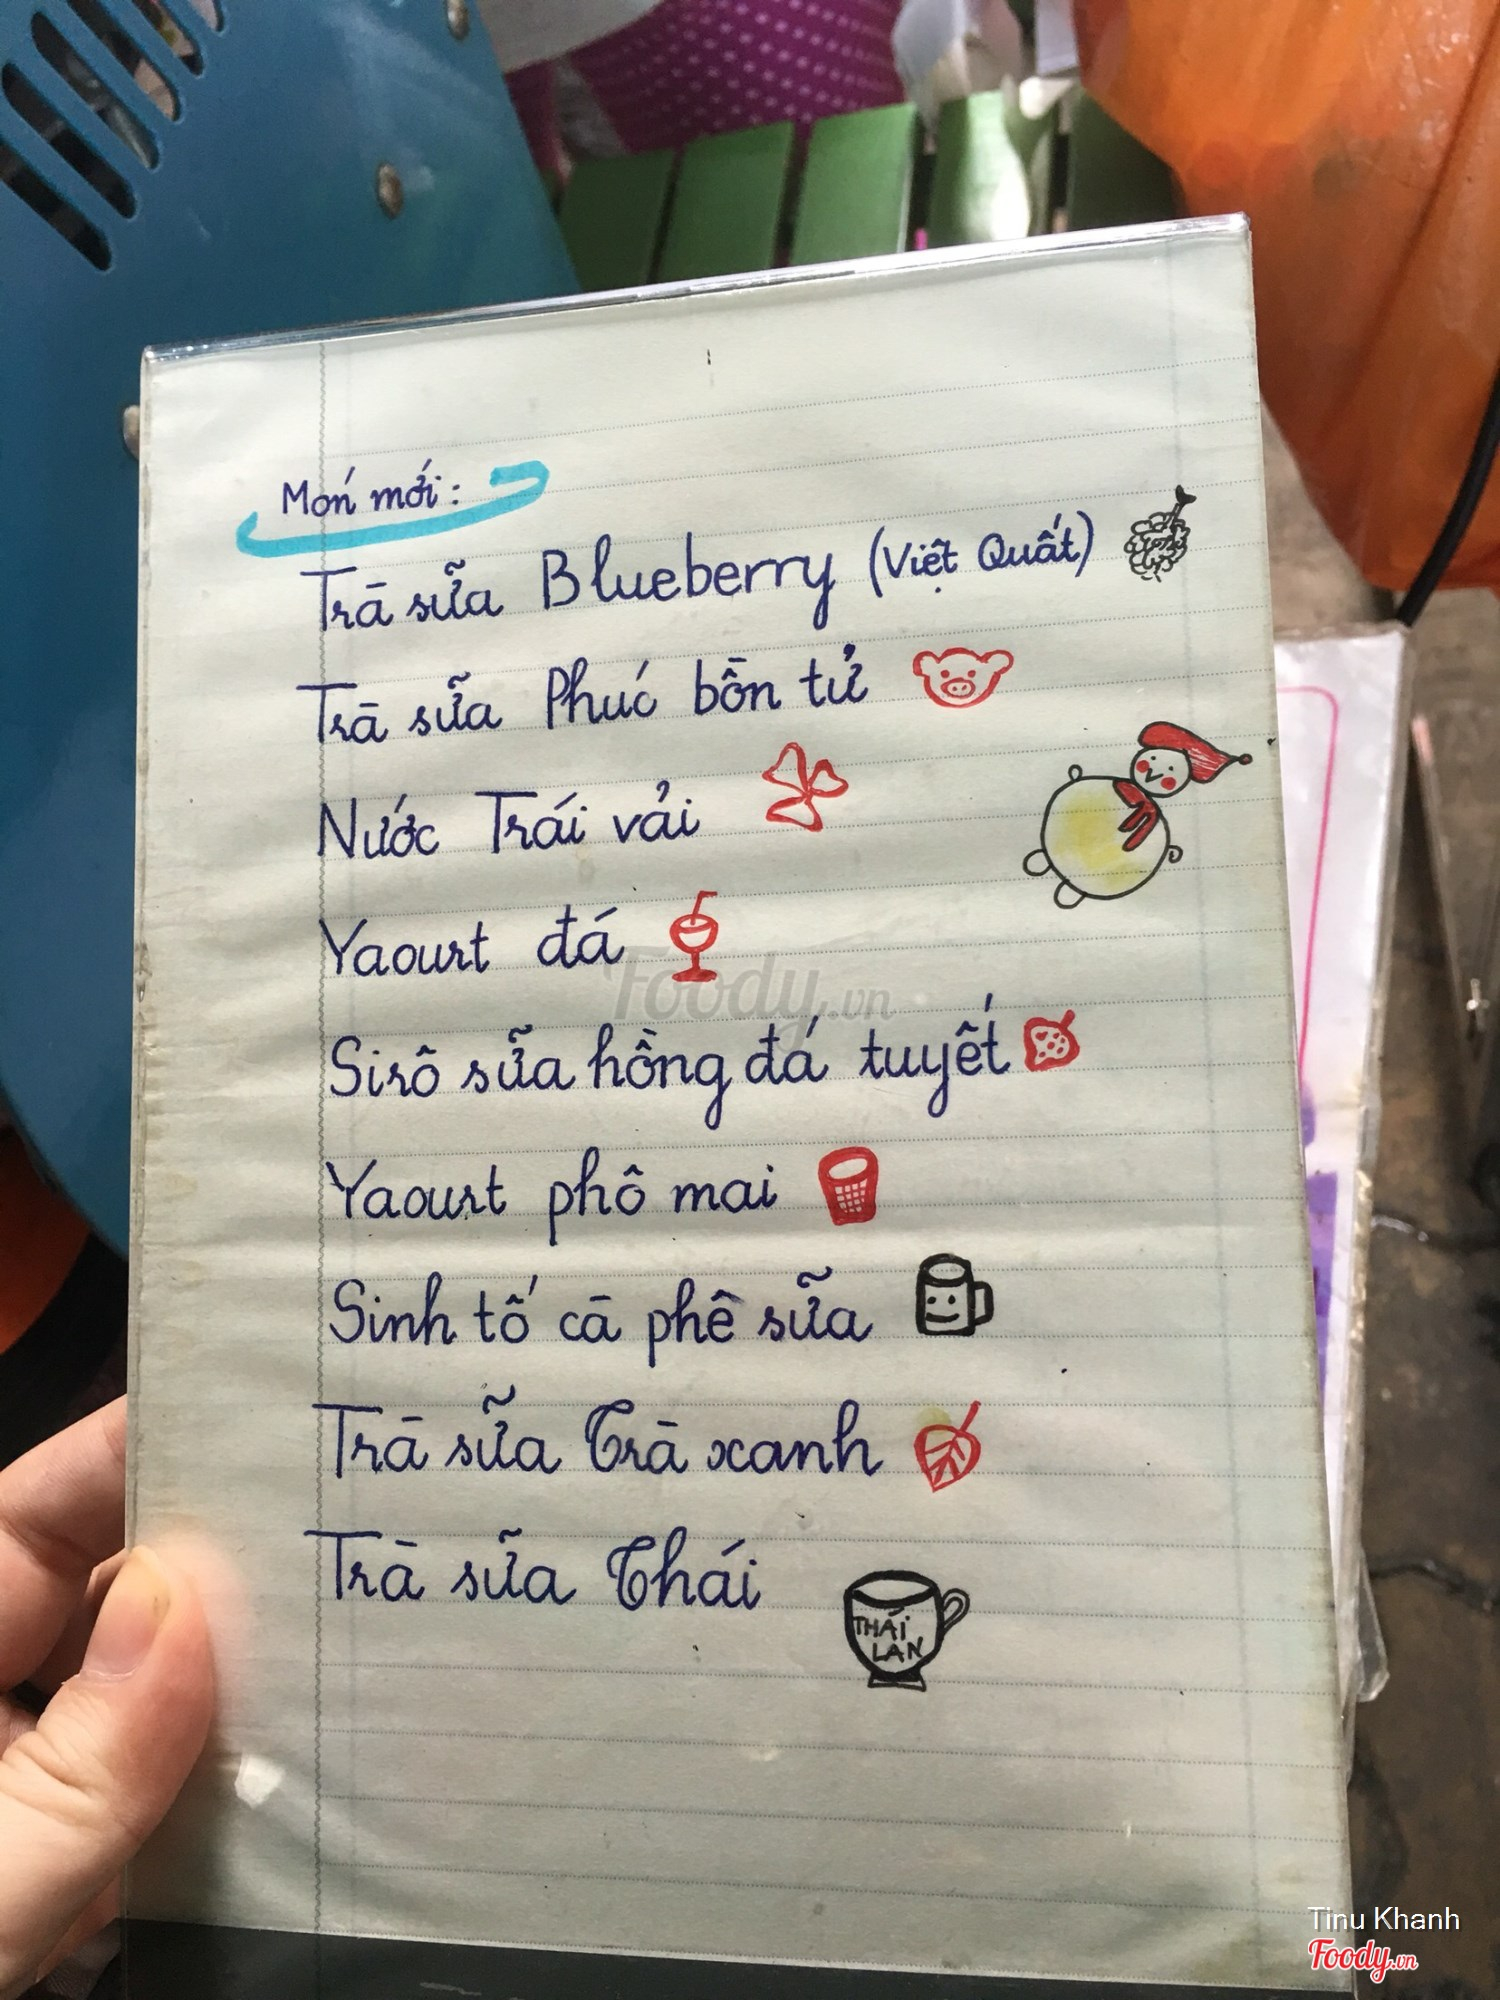 Món mới:
Trà sữa Blueberry (Việt Quất)
Trà sữa Phúc bồn tử
Nước Trái vải
Yaourt đá
Sirô sữa hồng đá tuyết
Yaourt phô mai
Sinh tố cà phê sữa
Trà sữa Trà xanh
Trà sữa Thái
THÁI
LAN
Foody.vn
Tinu Khanh
Foody.vn